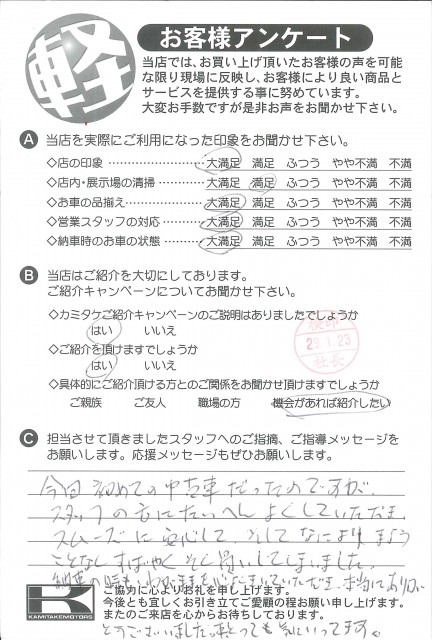 軽
お客様アンケート
当店では、お買い上げ頂いたお客様の声を可能
な限り現場に反映し、お客様により良い商品と
サービスを提供する事に努めています。
大変お手数ですが是非お声をお聞かせ下さい。
A 当店を実際にご利用になった印象をお聞かせ下さい。
◇店の印象 大満足 満足 ふつう やや不満 不満
◇店内・展示場の清掃 大満足 満足 ふつう やや不満 不満
◇お車の品揃え 大満足 満足 ふつう やや不満 不満
◇営業スタッフの対応 大満足 満足 ふつう やや不満 不満
◇納車時のお車の状態 大満足 満足 ふつう やや不満 不満
B 当店はご紹介を大切にしております。
ご紹介キャンペーンについてお聞かせ下さい。
◇カミタケご紹介キャンペーンのご説明はありましたでしょうか
はい いいえ
検印
29.1.23
社長
◇ご紹介を頂けますでしょうか
はい いいえ
◇具体的にご紹介頂ける方とのご関係をお聞かせ頂けますでしょうか
ご親族 ご友人 職場の方 機会があれば紹介したい
C 担当させて頂きましたスタッフへのご指摘、ご指導メッセージを
お願いします。応援メッセージもぜひお願いします。
今回初めての中古車だったのですが、
スタッフの方にたいへんよくしていただき、
スムーズに安心して、そしてなにより まよう
ことなくすばやく そく買いしてしまいました。
納車の時も いただき 本当にあり
KAMITAKEMOTORS
ご協力に心よりお礼を申し上げます。
今後とも宜しくお引き立てご愛顧の程お願い申し上げます。
またのご来店を心からお待ちしております。
とうございました。 とっても気にいってます。